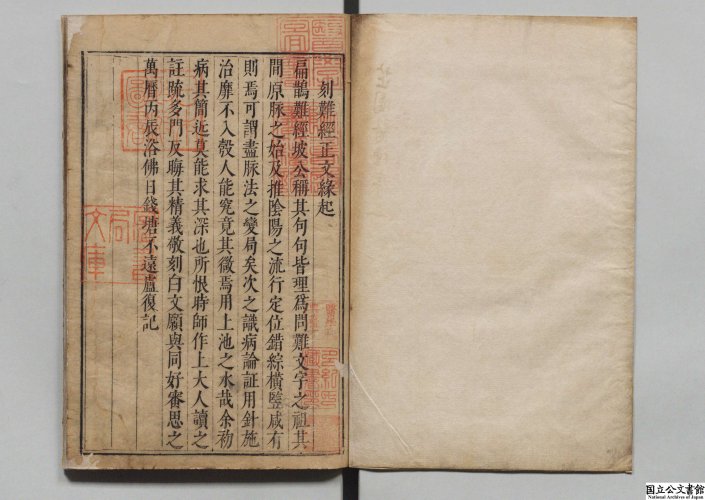 刻難經正文緣起
扁鵲難經坡公稱其句句皆理爲問難文字之祖其
間原脉之始及推陰陽之流行定位錯綜橫豎咸有
則焉可謂盡脉法之變局矣次之識病論証用針施
治靡不入彀人能究竟其微焉用上池之水哉余初
病其簡近莫能求其深也所恨時師作上大人讀之
註疏多門反晦其精義敬刻白文願與同好審思之
萬曆丙辰浴佛日錢塘不遠盧復記
文庫
国立公文書館
National Archives of Japan